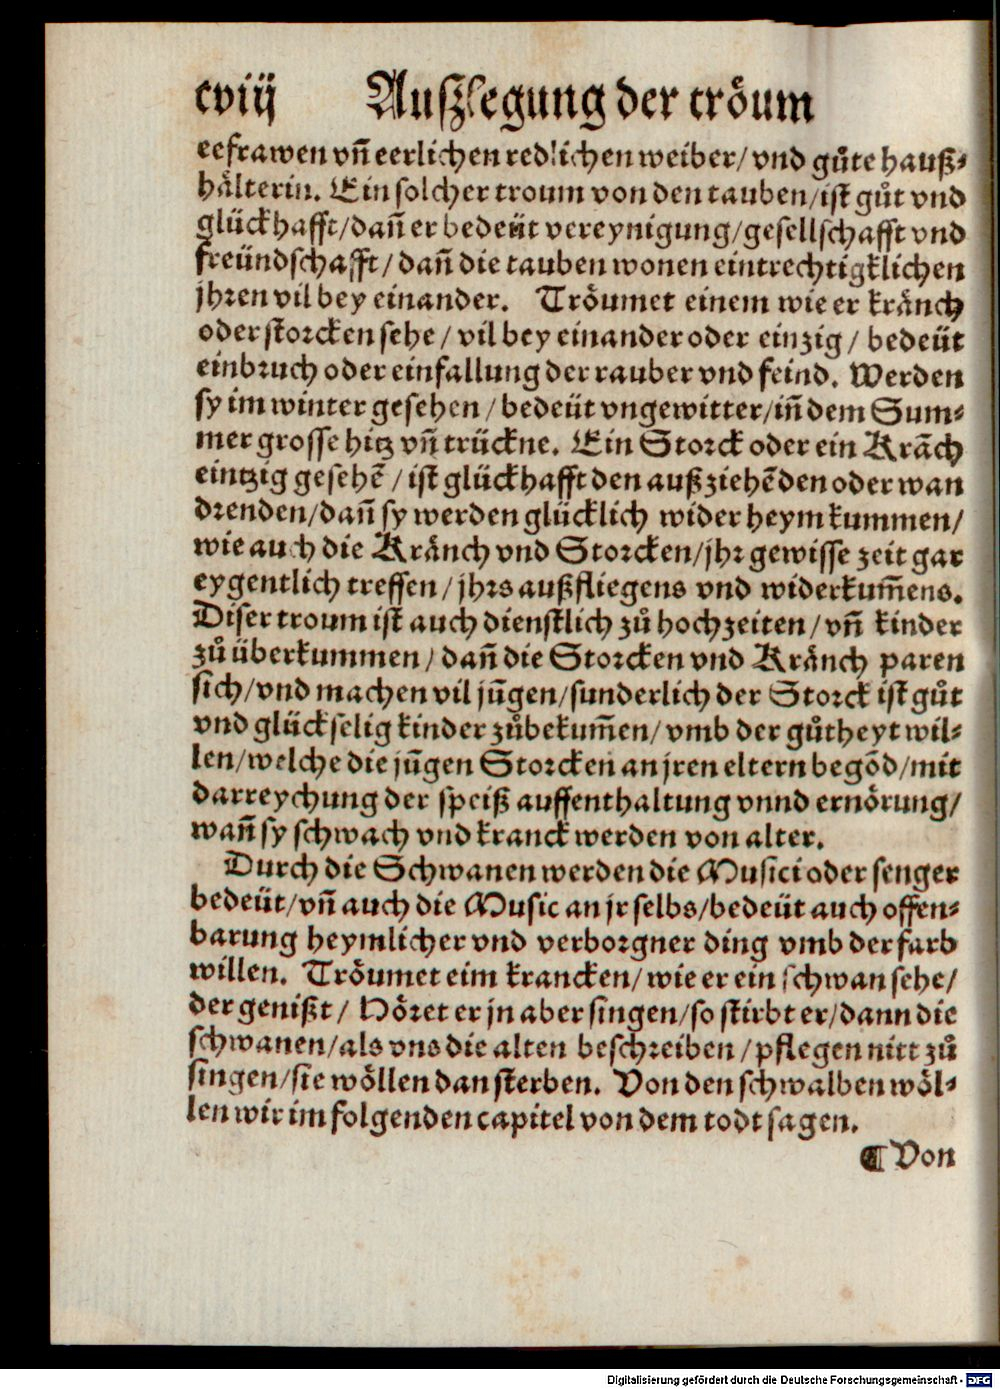 cviij Auſzlegung der tröum
eefrawen vñ eerlichen redlichen weiber/ vnd gůte hauß⸗
hälterin. Ein solcher troum von den tauben/ist gůt vnd
glückhafft/dañ er bedeüt vereynigung/gesellschafft vnd
freündschafft/ dañ die tauben wonen eintrechtigklichen
jhren vil bey einander. Tröumet einem wie er kränch
oder storcken sehe / vil bey einander oder einzig / bedeüt
einbruch oder einfallung der rauber vnd feind. Werden
sy im winter gesehen / bedeüt vngewitter/iñ dem Sum⸗
mer grosse hitz vñ trückne. Ein Storck oder ein Krãch
eintzig gesehẽ / ist glückhafft den auß ziehẽden oder wan
drenden/dañ sy werden glücklich wider heym kummen/
wie auch die Kränch vnd Storcken/jhr gewisse zeit gar
eygentlich treffen/ jhrs außfliegens vnd widerkum̃ens.
Diser troum ist auch dienstlich zů hochzeiten/ vñ kinder
zů überkummen/ dañ die Storcken vnd Kränch paren
sich/vnd machen vil jũgen/sunderlich der Storck ist gůt
vnd glückselig kinder zůbekum̃en/ vmb der gůtheyt wil⸗
len/welche die jũgen Storcken an jren eltern begõd/mit
darreychung der speiß auffenthaltung vnnd ernörung/
wañ sy schwach vnd kranck werden von alter.
Durch die Schwanen werden die Musici oder senger
bedeüt/vñ auch die Music an jr selbs/bedeüt auch offen⸗
barung heymlicher vnd verborgner ding vmb der farb
willen. Tröumet eim krancken/ wie er ein schwan sehe/
der genißt / Höret er jn aber singen/so stirbt er/dann die
schwanen/als vns die alten beschreiben / pflegen nitt zů
singen/sie wöllen dan sterben. Von den schwalben wöl⸗
len wir im folgenden capitel von dem todt sagen.
¶ Von
Digitalisierung gefördert durch die Deutsche Forschungsgemeinschaft - DFG